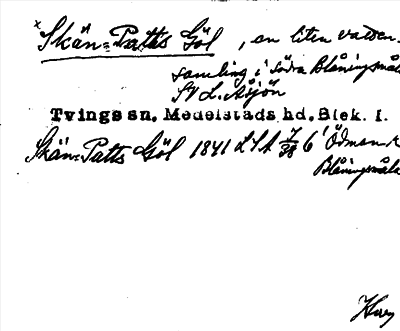 Skän-Patts Göl, en liten vatten-
samling i södra Blåningsmåla
SV L. Åsjön
Tvings sn. Medelstads hd. Blek. l.
Skän-Patts Göl 1841 LSA 7/38 6 Ödman
Blåningsmåla